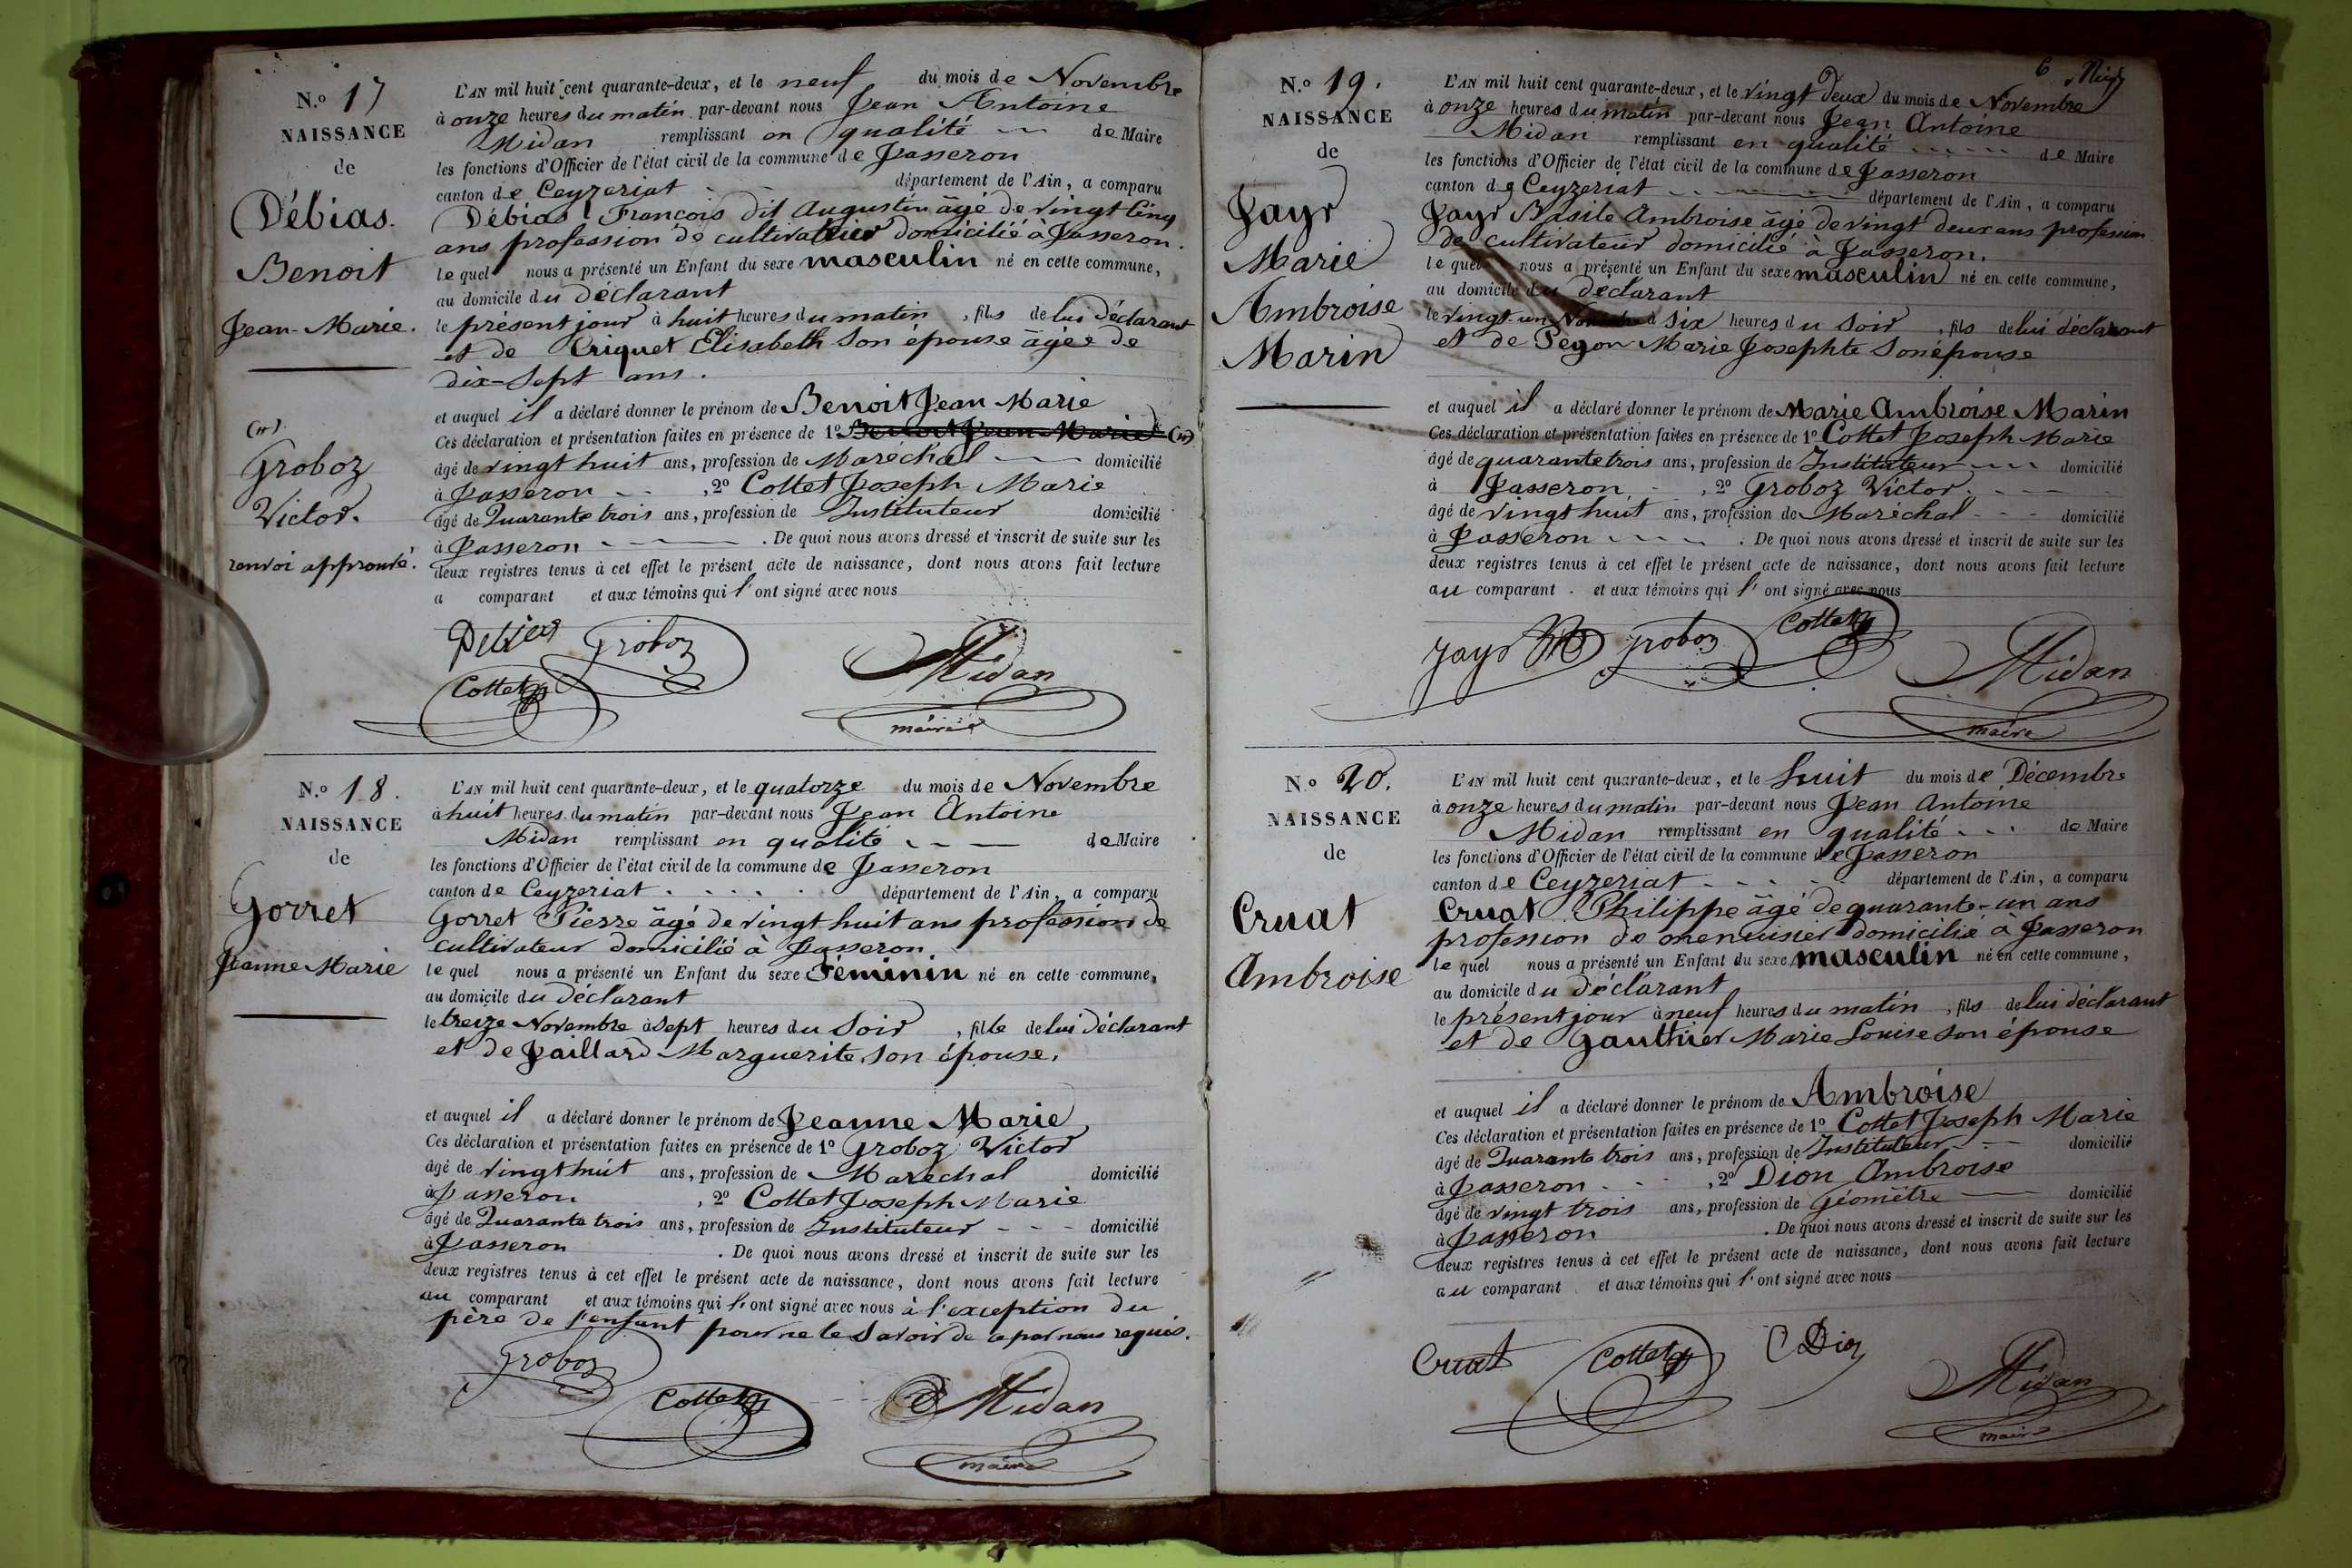 N.o 17
NAISSANCE
de
Débias.
Benoit
Jean-Marie.
L'AN mil huit cent quarante-deux, et le neuf du mois de Novembre
à onze heures du matin par-devant nous Jean Antoine
Midan remplissant en qualité de Maire
les fonctions d'Officier de l'état civil de la commune de Jasseron
canton de Ceyzeriat département de l'Ain, a comparu
Débias François dit Augustin âgé de vingt cinq
ans profession de cultivateur domicilié à Jasseron.
lequel nous a présenté un Enfant du sexe masculin né en cette commune,
au domicile du déclarant
le présent jour à huit heures du matin, fils de lui déclarant
et de Criquet Elisabeth son épouse âgée de
dix-sept ans.
et auquel il a déclaré donner le prénom de Benoit Jean Marie
Ces déclaration et présentation faites en présence de 1o Benoit Jean Marie (x)
âgé de vingt huit ans, profession de Maréchal domicilié
à Jasseron, 2o Cottet Joseph Marie
âgé de Quarante trois ans, profession de Instituteur domicilié
à Jasseron. De quoi nous avons dressé et inscrit de suite sur les
deux registres tenus à cet effet le présent acte de naissance, dont nous avons fait lecture
a comparant et aux témoins qui l'ont signé avec nous
(x).
Groboz
Victor.
renvoi approuvé.
Debias Groboz
Cottet Midan
maire
N.o 18.
NAISSANCE
de
Gorret
Jeanne Marie
L'AN mil huit cent quarante-deux, et le quatorze du mois de Novembre
à huit heures du matin par-devant nous Jean Antoine
Midan remplissant en qualité de Maire
les fonctions d'Officier de l'état civil de la commune de Jasseron
canton de Ceyzeriat département de l'Ain, a comparu
Gorret Pierre âgé de vingt huit ans profession de
cultivateur domicilié à Jasseron
lequel nous a présenté un Enfant du sexe Féminin né en cette commune,
au domicile du déclarant
le treize Novembre à sept heures du soir, fille de lui déclarant
et de Paillard Marguerite son épouse.
et auquel il a déclaré donner le prénom de Jeanne Marie
Ces déclaration et présentation faites en présence de 1o Groboz Victor
âgé de vingt huit ans, profession de Maréchal domicilié
à Jasseron, 2o Cottet Joseph Marie
âgé de Quarante trois ans, profession de Instituteur domicilié
à Jasseron. De quoi nous avons dressé et inscrit de suite sur les
deux registres tenus à cet effet le présent acte de naissance, dont nous avons fait lecture
au comparant et aux témoins qui l'ont signé avec nous à l'exception du
père de l'enfant pour ne le savoir de ce par nous requis.
Groboz
Cottet Midan
maire
6
N.o 19.
NAISSANCE
de
Jayr
Marie
Ambroise
Marin
L'AN mil huit cent quarante-deux, et le vingt deux du mois de Novembre
à onze heures du matin par-devant nous Jean Antoine
Midan remplissant en qualité de Maire
les fonctions d'Officier de l'état civil de la commune de Jasseron
canton de Ceyzeriat département de l'Ain, a comparu
Jayr Basile Ambroise âgé de vingt deux ans profession
de cultivateur domicilié à Jasseron.
lequel nous a présenté un Enfant du sexe masculin né en cette commune,
au domicile du déclarant
le vingt-un Novembre à six heures du soir, fils de lui déclarant
et de Pegon Marie Josephte son épouse
et auquel il a déclaré donner le prénom de Marie Ambroise Marin
Ces déclaration et présentation faites en présence de 1o Cottet Joseph Marie
âgé de quarante trois ans, profession de Instituteur domicilié
à Jasseron, 2o Groboz Victor.
âgé de vingt huit ans, profession de Maréchal domicilié
à Jasseron. De quoi nous avons dressé et inscrit de suite sur les
deux registres tenus à cet effet le présent acte de naissance, dont nous avons fait lecture
au comparant. et aux témoins qui l'ont signé avec nous
Jayr Groboz Cottet
Midan
maire
N.o 20.
NAISSANCE
de
Cruat
Ambroise
L'AN mil huit cent quarante-deux, et le huit du mois de Décembre
à onze heures du matin par-devant nous Jean Antoine
Midan remplissant en qualité de Maire
les fonctions d'Officier de l'état civil de la commune de Jasseron
canton de Ceyzeriat département de l'Ain, a comparu
Cruat Philippe âgé de quarante-un ans
profession de menuisier domicilié à Jasseron
lequel nous a présenté un Enfant du sexe masculin né en cette commune,
au domicile du déclarant
le présent jour à neuf heures du matin, fils de lui déclarant
et de Gauthier Marie Louise son épouse
et auquel il a déclaré donner le prénom de Ambroise
Ces déclaration et présentation faites en présence de 1o Cottet Joseph Marie
âgé de Quarante trois ans, profession de Instituteur domicilié
à Jasseron, 2o Dion Ambroise
âgé de vingt trois ans, profession de Géomètre domicilié
à Jasseron. De quoi nous avons dressé et inscrit de suite sur les
deux registres tenus à cet effet le présent acte de naissance, dont nous avons fait lecture
au comparant et aux témoins qui l'ont signé avec nous
Cruat Cottet Dion
Midan
maire